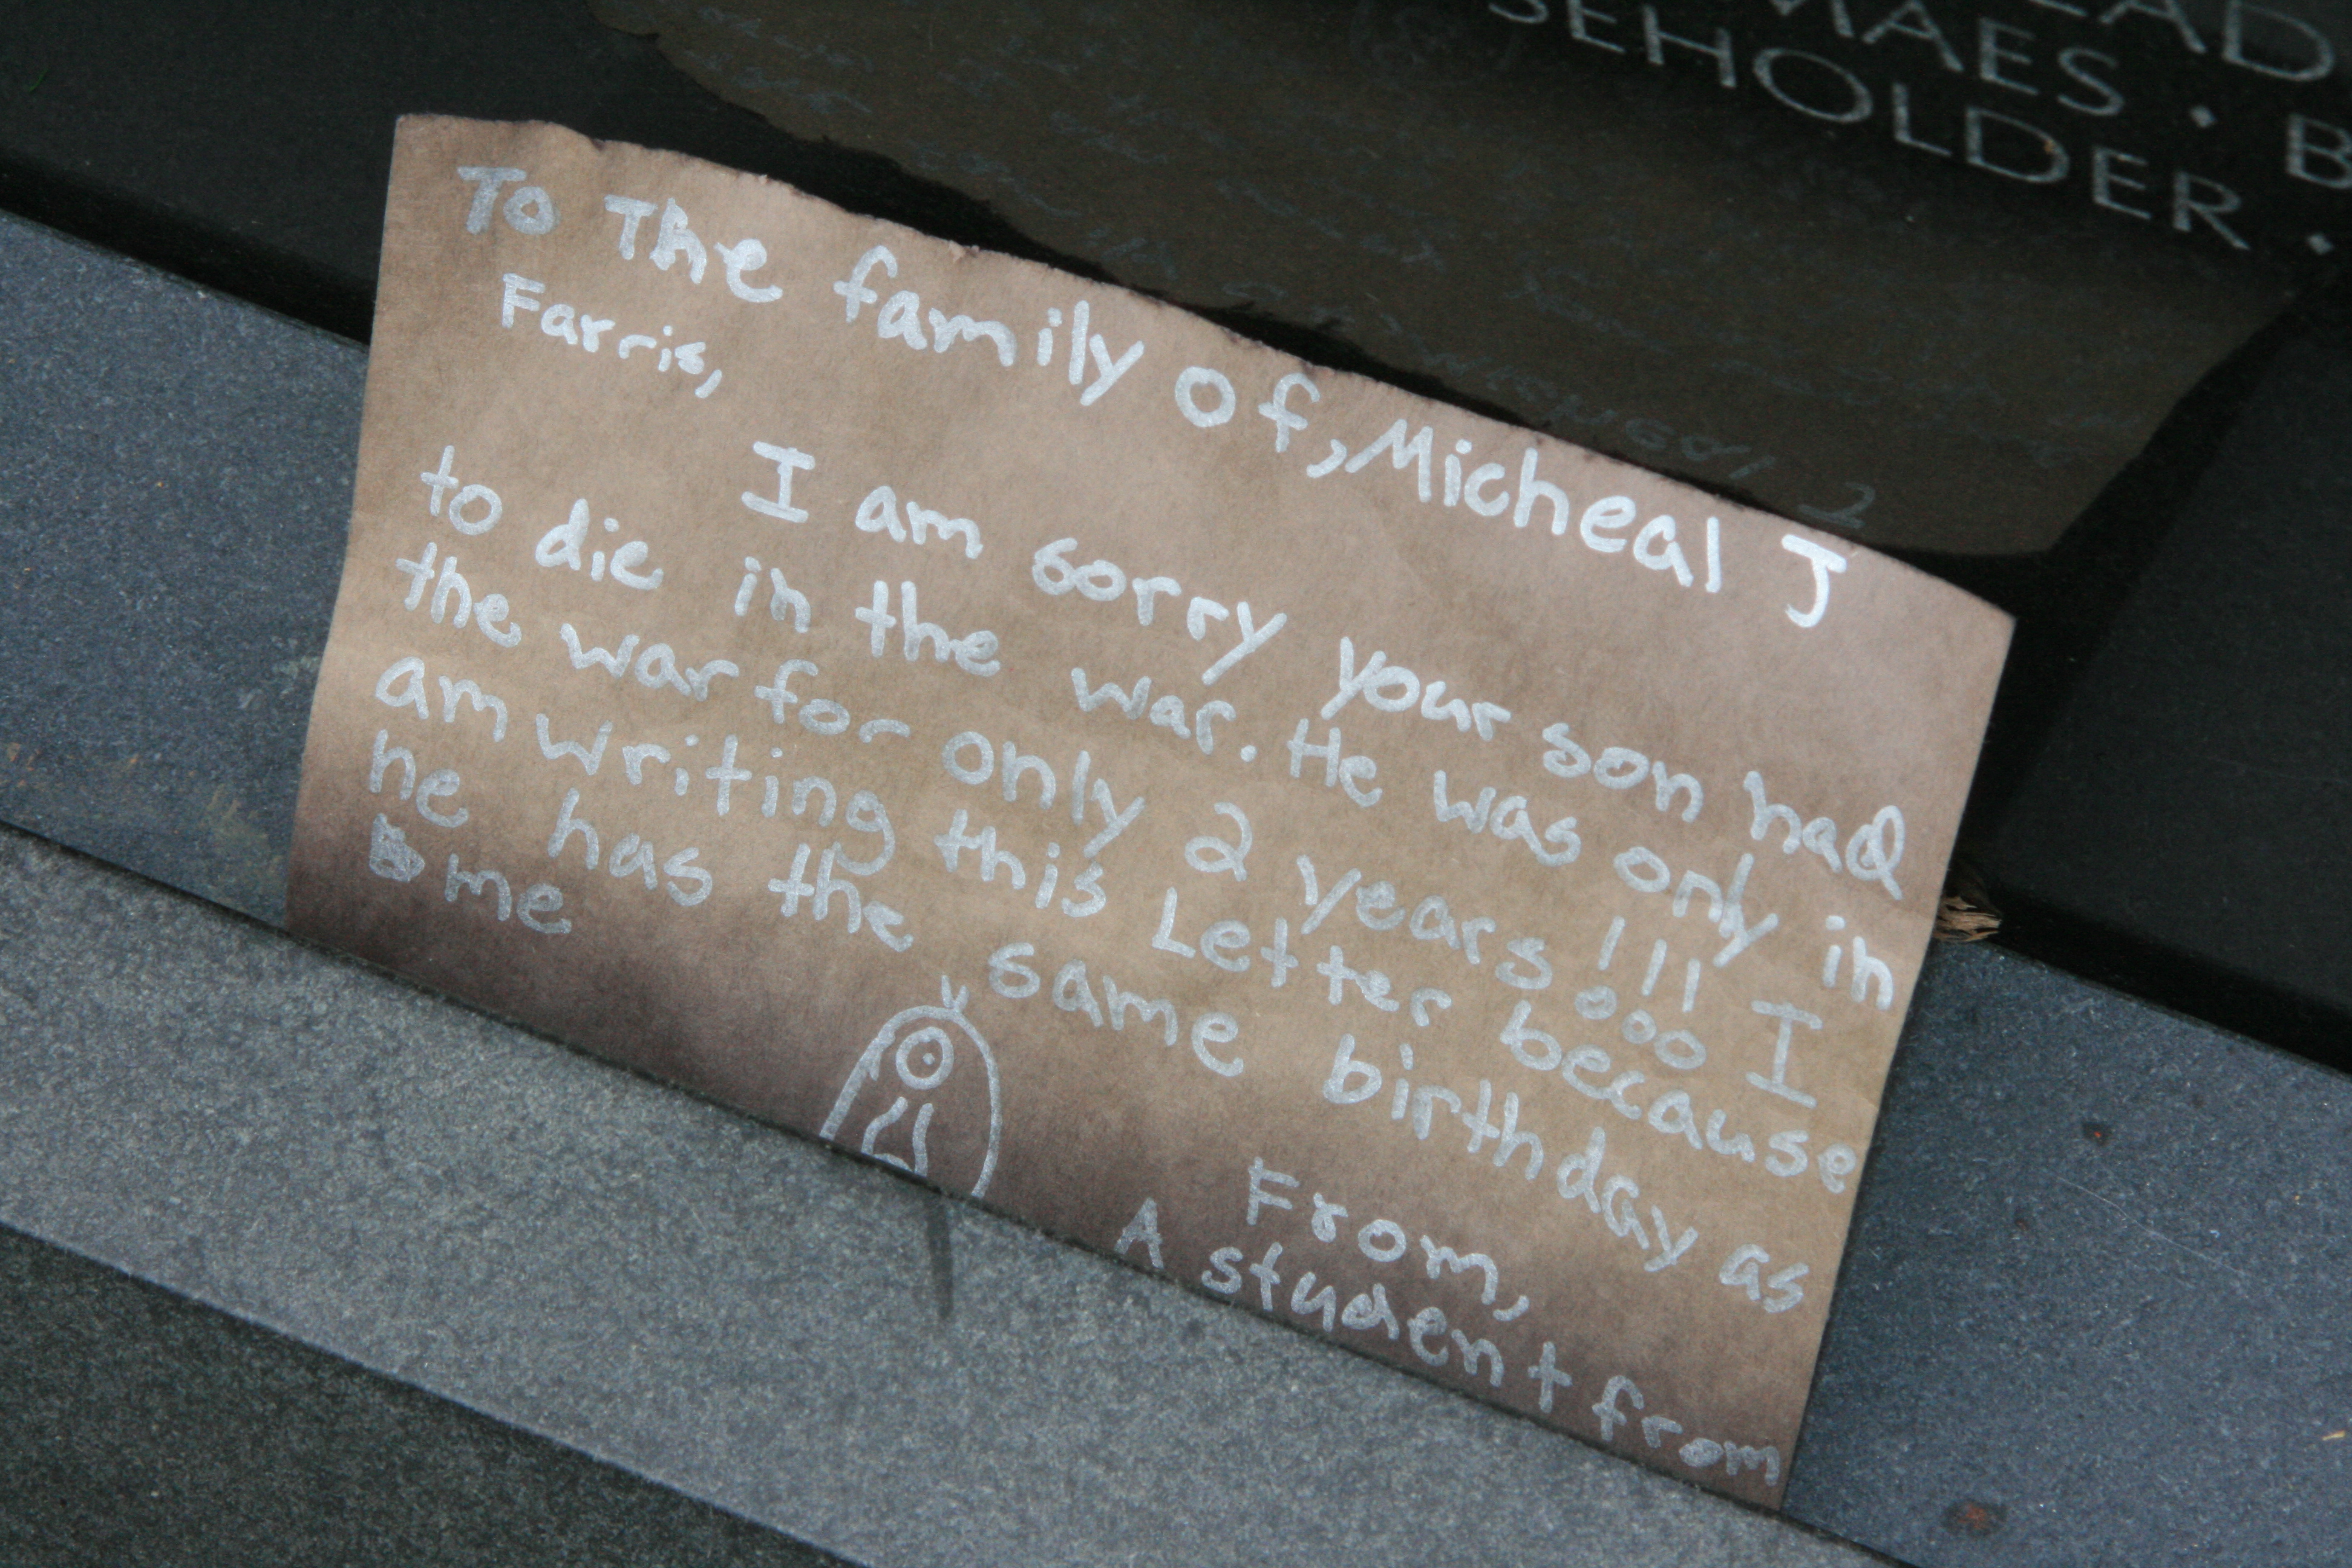 MAES · B
SEHOLDER ·
To The family of, Micheal J
Farris,
I am sorry your son had
to die in the war. He was only in
the war for only 2 years!!! I
am writing this Letter because
he has the same birthday as
me
From,
A student from